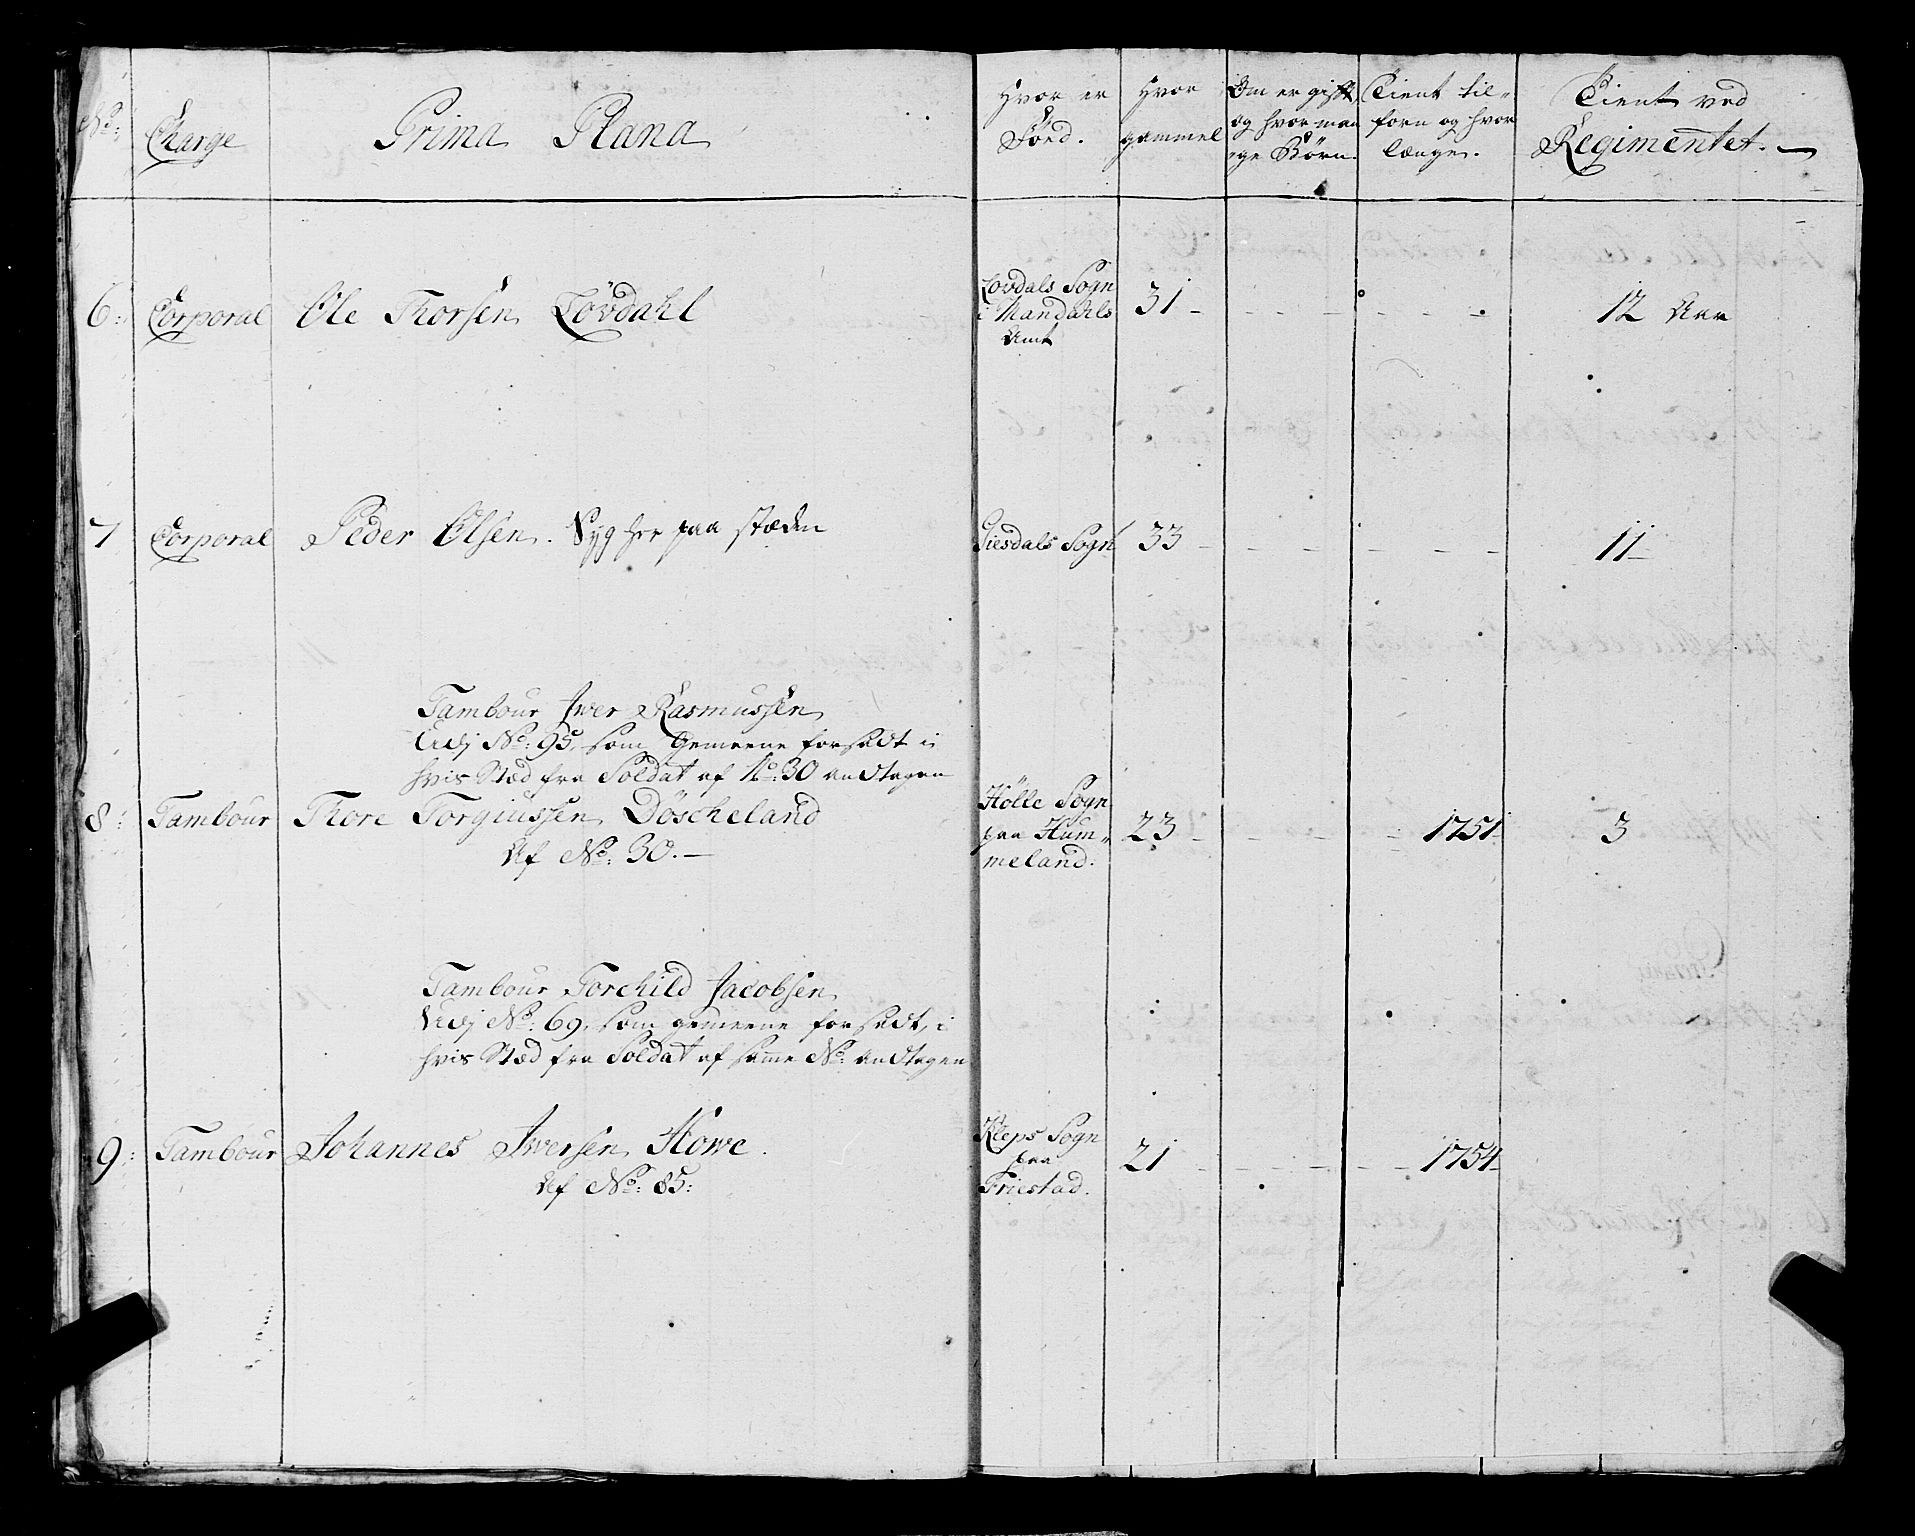 No:
Charge
Prima Plana
Hvor er
Föed.
Hvor
gammel
Om er gift,
og hvor man
ge Börn.
Tient til-
forn og hvor
længe.
Tient ved
Regimentet. —
6: Corporal Ole Thorsen Lövdahl
Lovdals Sogn
i Mandahls
Amt
31 - - - - - - - 12 Aar
7 Corporal Peder Olsen. Syg her paa stæden
Giesdals Sogn 33 - - - - - - - 11 -
Tambour Iwer Rasmussen
No: 95, som Gemeene forsadt i
hvis Stæd fra Soldat af No: 30 andtagen
8: Tambour Thore Torgiussen Döscheland
Af No: 30. —
Hölle Sogn
paa Hum-
meland.
23 - - - - 1751 - 3
Tambour Torchild Jacobsen
No: 69, som gemeene forsadt, i
hvis Stæd fra Soldat af samme No: andtagen
9: Tambour Johannes Iwersen Howe.
Af No: 85:
Kleps Sogn
paa
Friestad.
21 - - - - - 1754 -